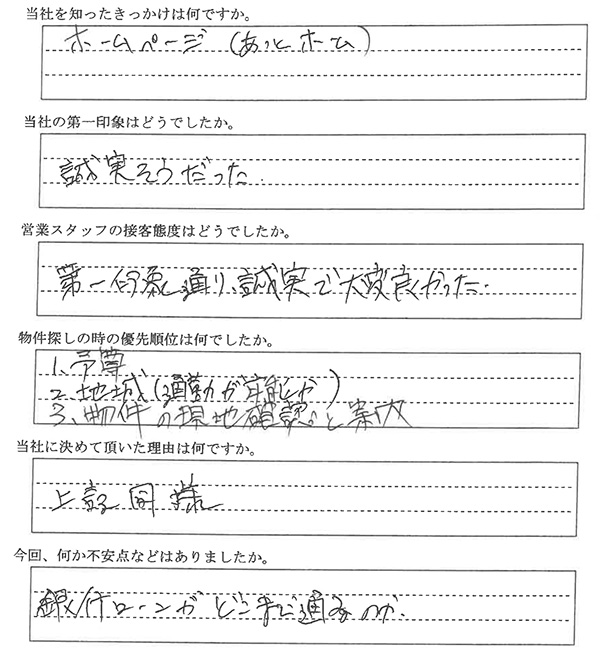 当社を知ったきっかけは何ですか。
ホームページ (あっとホーム)
当社の第一印象はどうでしたか。
誠実そうだった.
営業スタッフの接客態度はどうでしたか。
第一印象通り、誠実で大変良かった.
物件探しの時の優先順位は何でしたか。
1、予算
2、地域 (通勤が可能か)
3、物件の現地確認と案内
当社に決めて頂いた理由は何ですか。
上記同様
今回、何か不安点などはありましたか。
銀行ローンがどこまで通るのか.